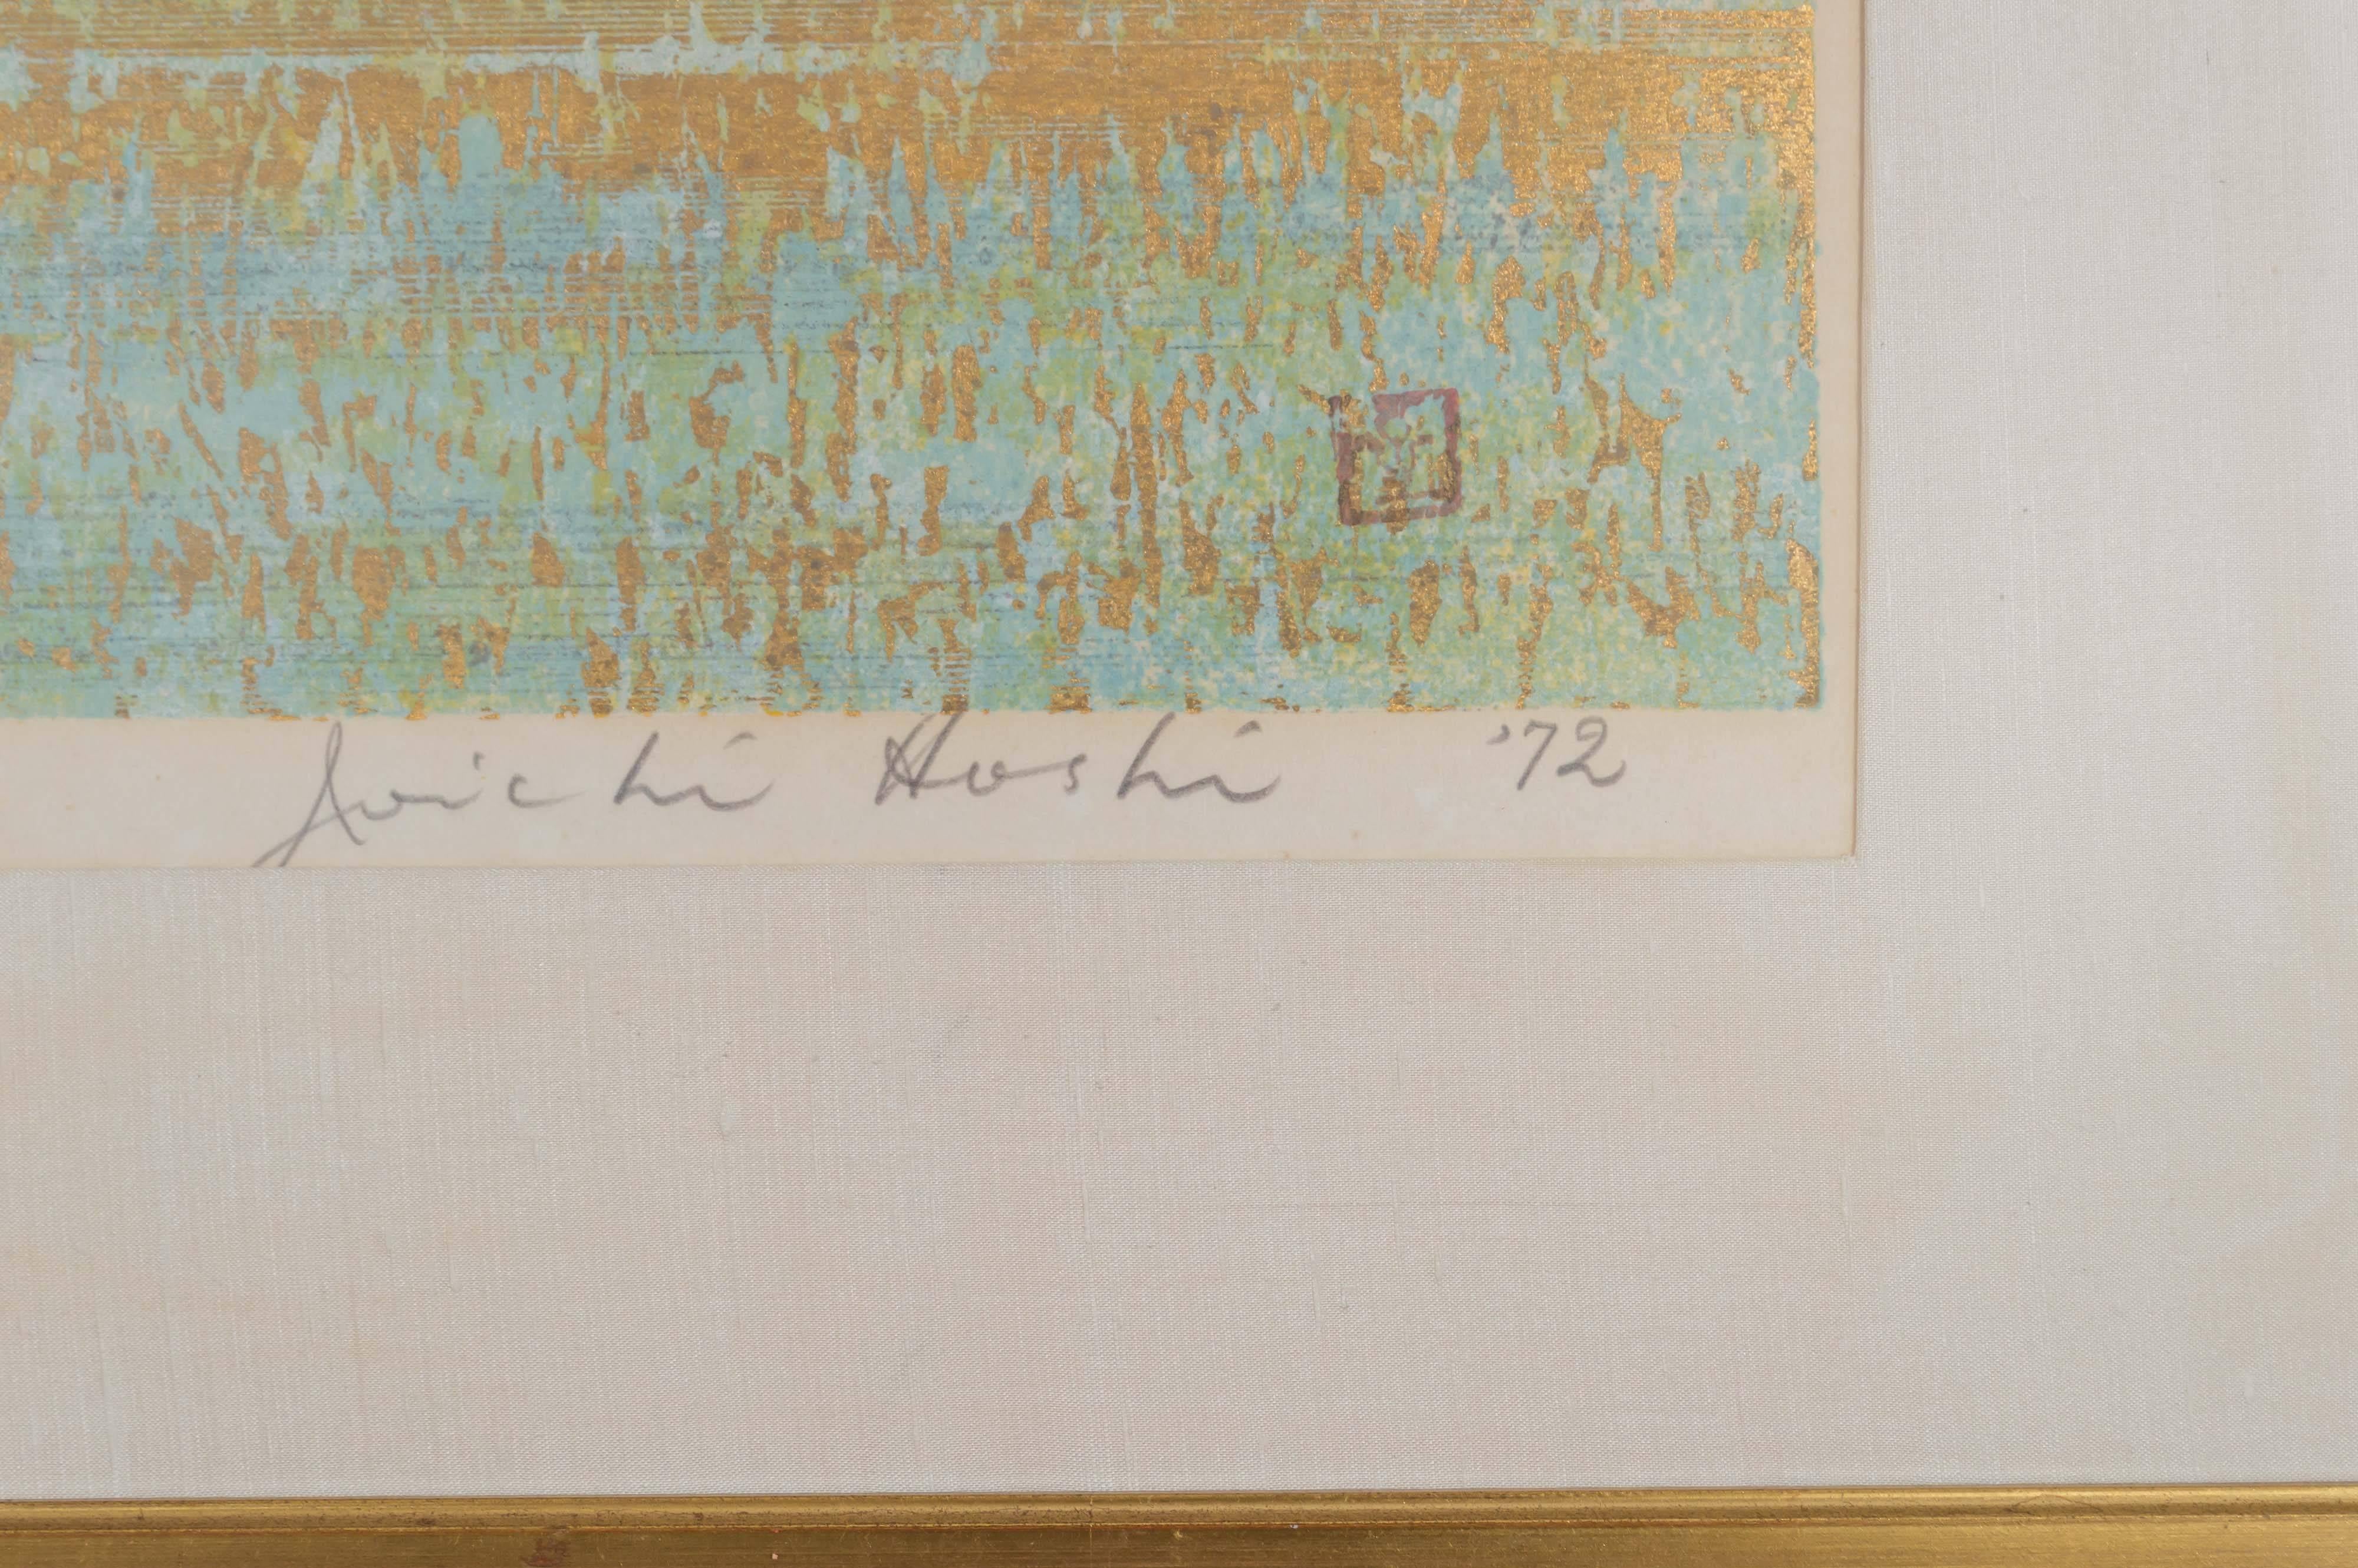 Joichi Hoshi '72